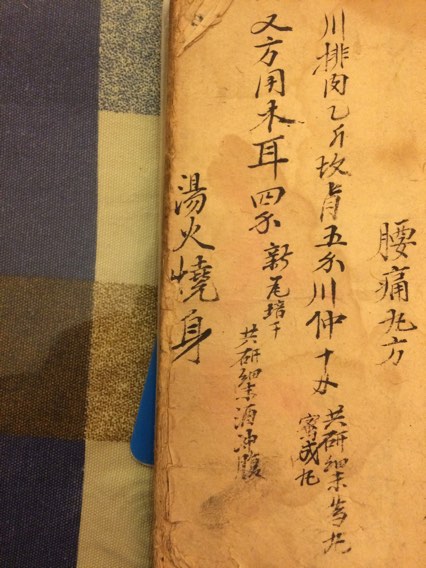 腰痛丸方
川排肉乙斤五分川仲十
共研細末為丸
蜜成丸
又方用木耳四分
新瓦培干
共研細末酒冲腹
湯火燒身